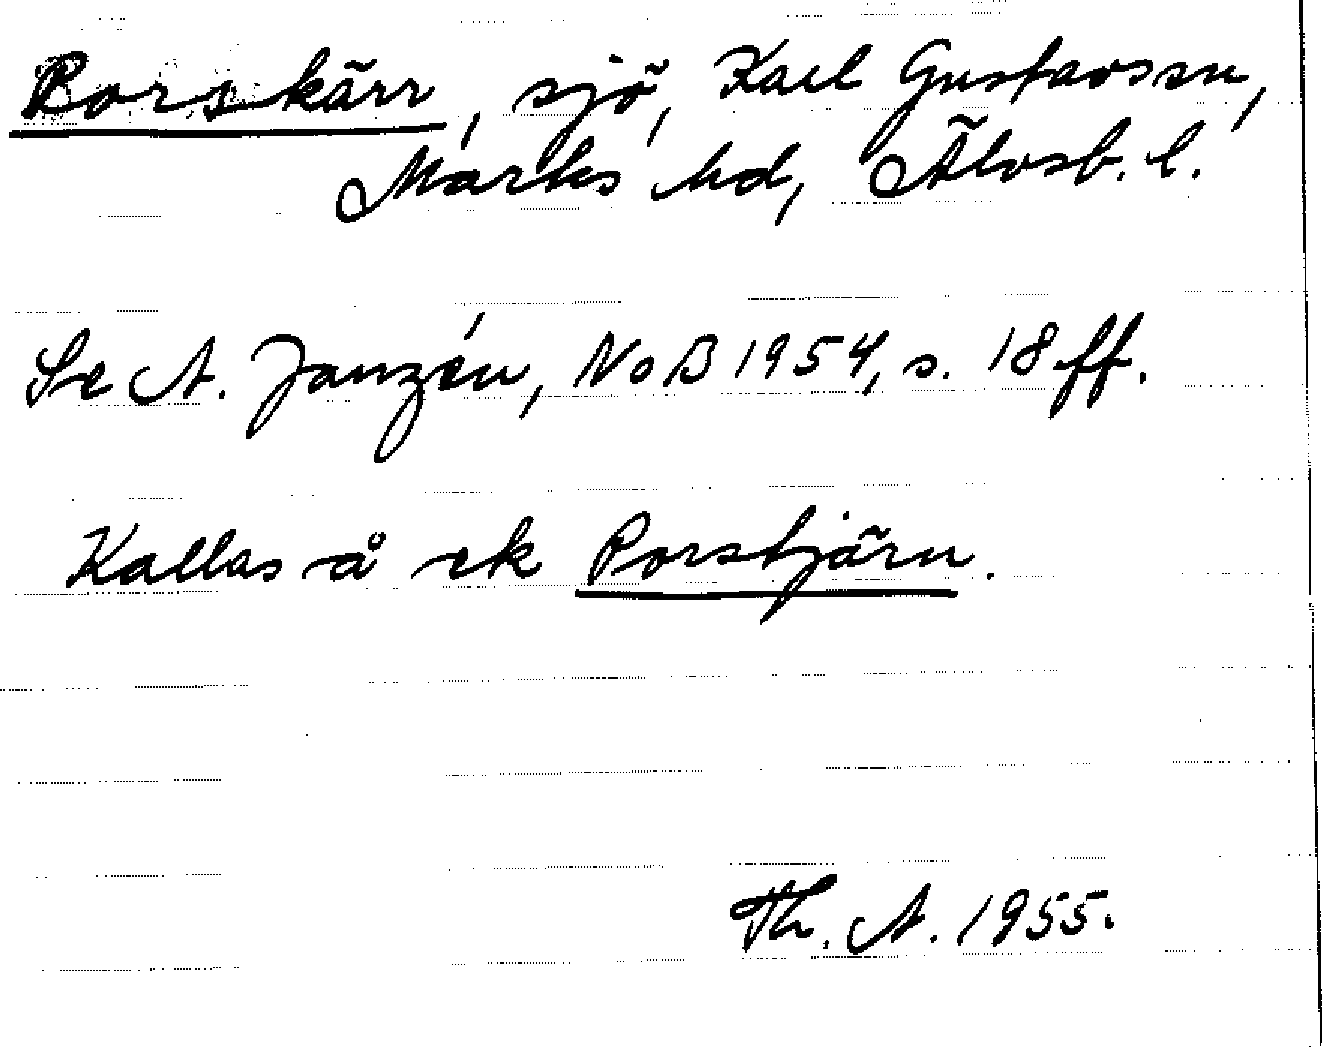 Porskärr, sjö, Karl Gustavs sn,
Marks hd, Älvsb. l.
Se A. Janzén, NoB 1954, s. 18 ff.
Kallas å ek Porstjärn.
Th. A. 1955.